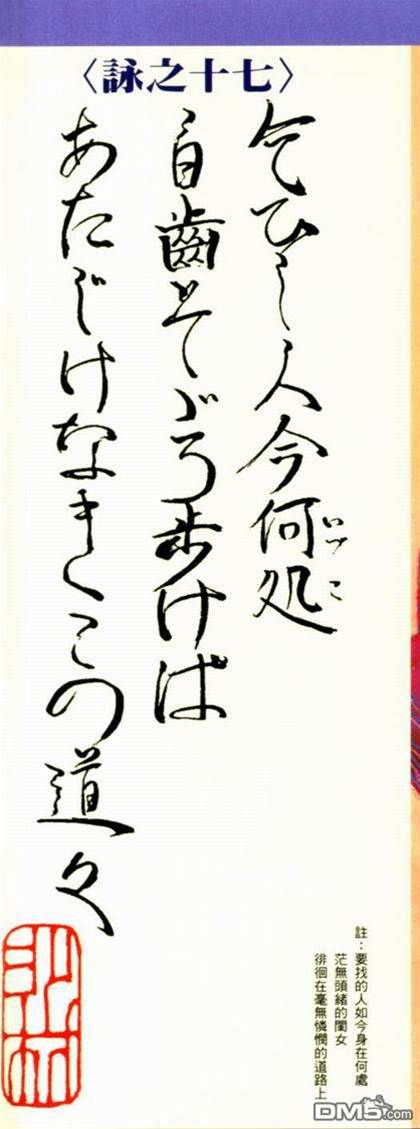 〈詠之十七〉
乞ひし人今何処
いづこ
白齒そゞろ歩けば
あたじけなきこの道々
註：要找的人如今身在何處
茫無頭緒的閨女
徘徊在毫無憐憫的道路上
DM5.com